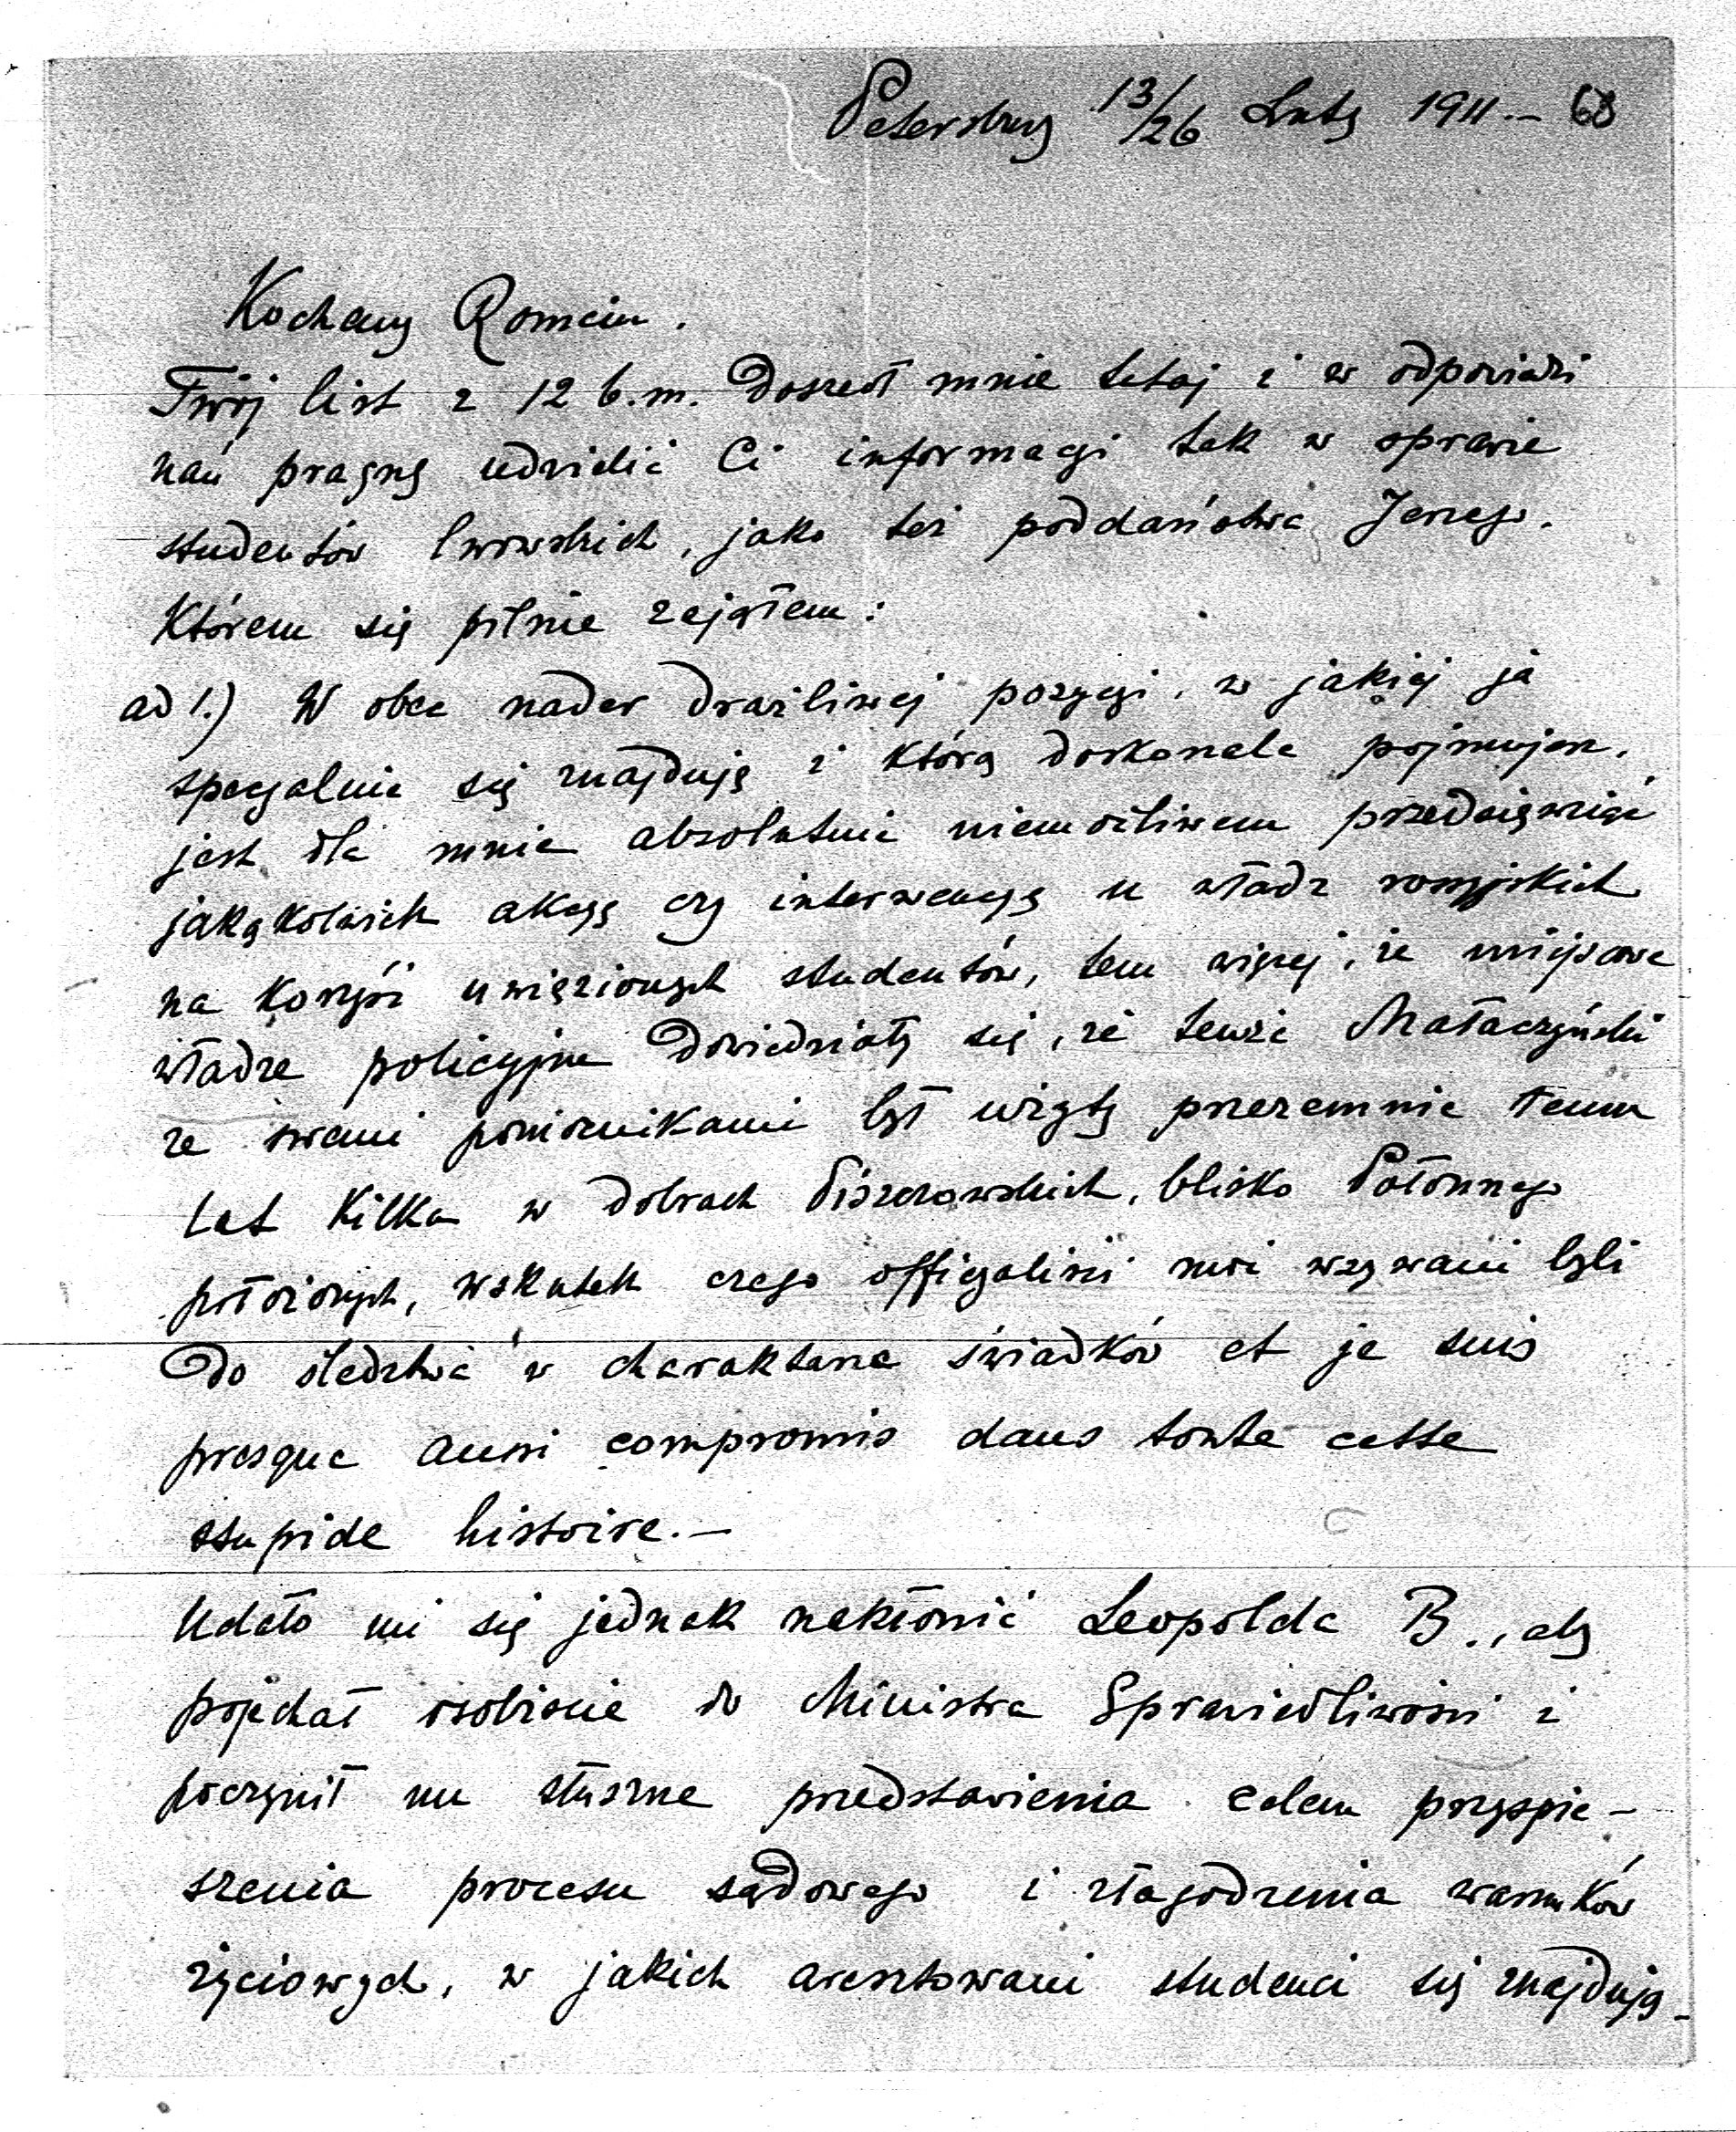 Petersburg 13/26 Luty 1911.— 68
Kochany Romciu.
Twój list z 12 b.m. doszedł mnie tutaj i w odpowiedzi
nań pragnę udzielić Ci informacyi tak w sprawie
studentów lwowskich, jako też poddaństwa Jerzego.
Którem się pilnie zająłem:
ad 1.) W obec nader drażliwej pozycyi, w jakiej ja
specyalnie się znajduję i którą doskonale pojmujesz,
jest dla mnie absolutnie niemożliwem przedsięwziąć
jakąkolwiek akcyę czy interwencyę u władz rossyjskich
na korzyść uwięzionych studentów, tem więcej, że miejscowe
władze policyjne dowiedziały się, że tenże Małaczyński
ze swemi pomocnikami był użyty przezemnie temu
lat kilka w dobrach Piszczowskich, blisko Połonnego
położonych, wskutek czego officyaliści moi wzywani byli
do śledztwa w charakterze świadków et je suis
presque aussi compromis dans toute cette
stupide histoire.—
Udało mi się jednak nakłonić Leopolda B., aby
pojechał osobiście do Ministra Sprawiedliwości i
poczynił mu słuszne przedstawienia celem przyspie-
szenia procesu sądowego i złagodzenia warunków
życiowych, w jakich aresztowani studenci się znajdują_